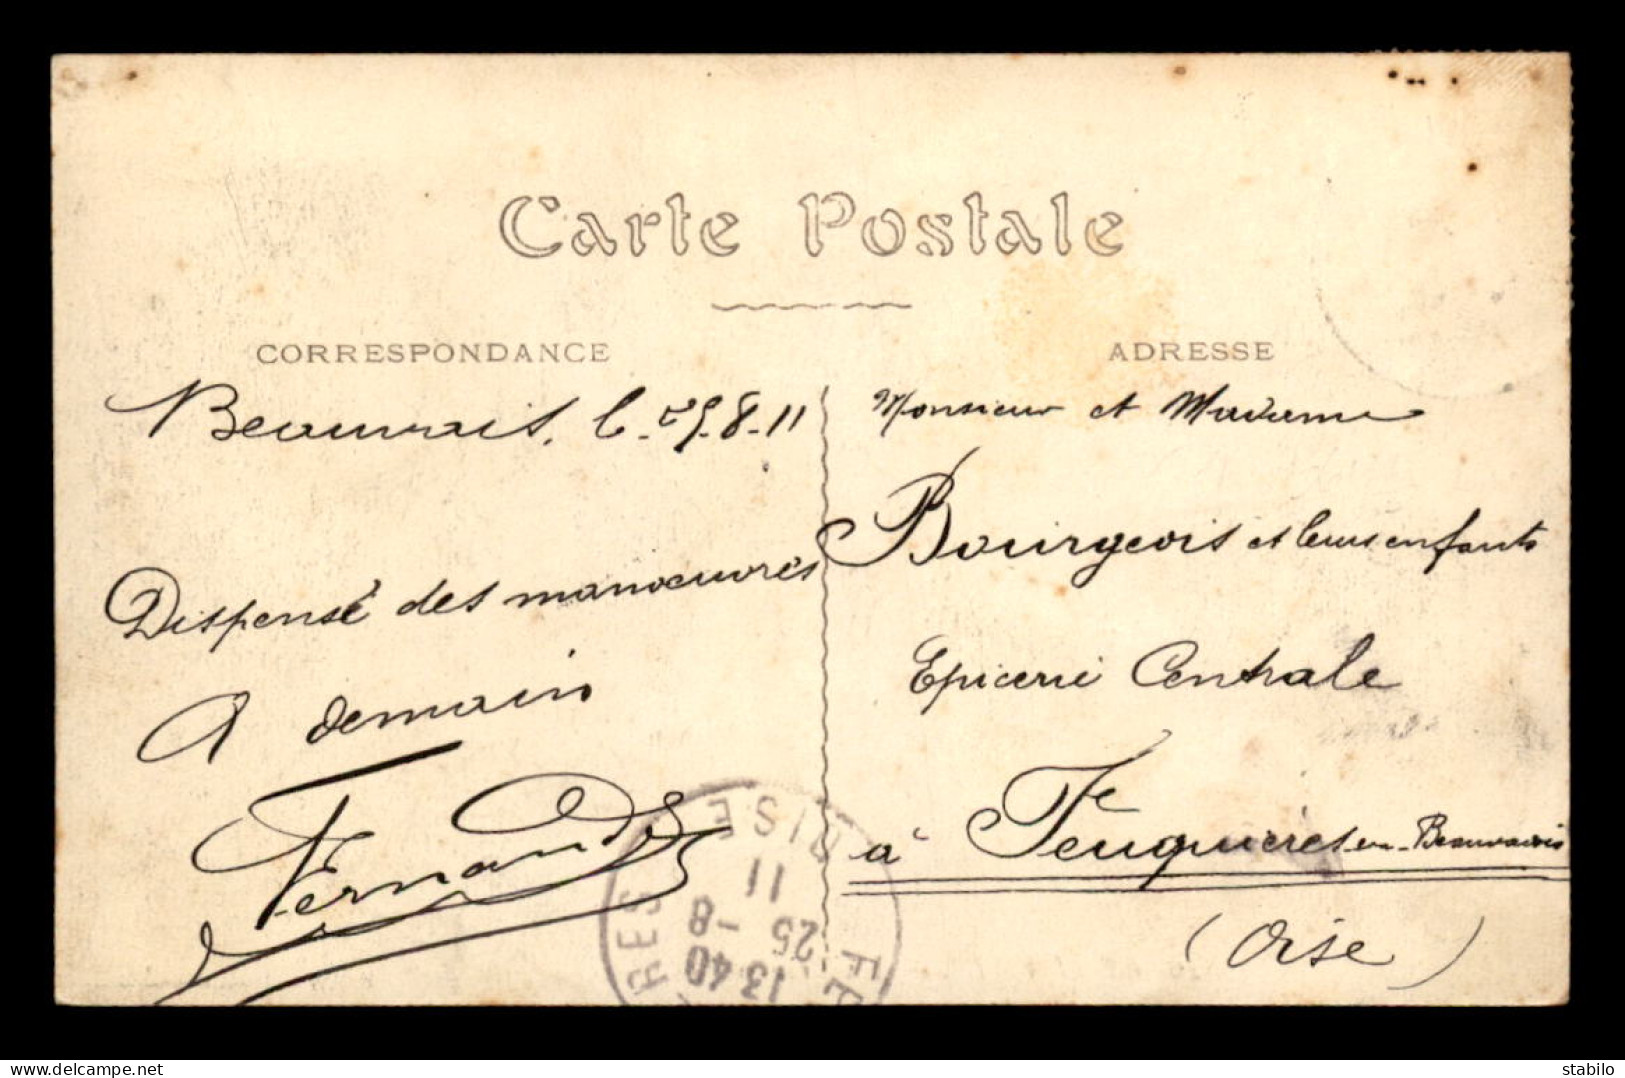 Carte Postale
CORRESPONDANCE
Beauvais, le 25-8-11
Dispensé des manoeuvres
A demain
Fernand
ADRESSE
Monsieur et Madame
Bourgeois et leurs enfants
Epicerie Centrale
à Feuquières-en-Beauvaisis
(Oise)
OISE
11
25 -8
13 40
RES
stabilo
delcampe.net